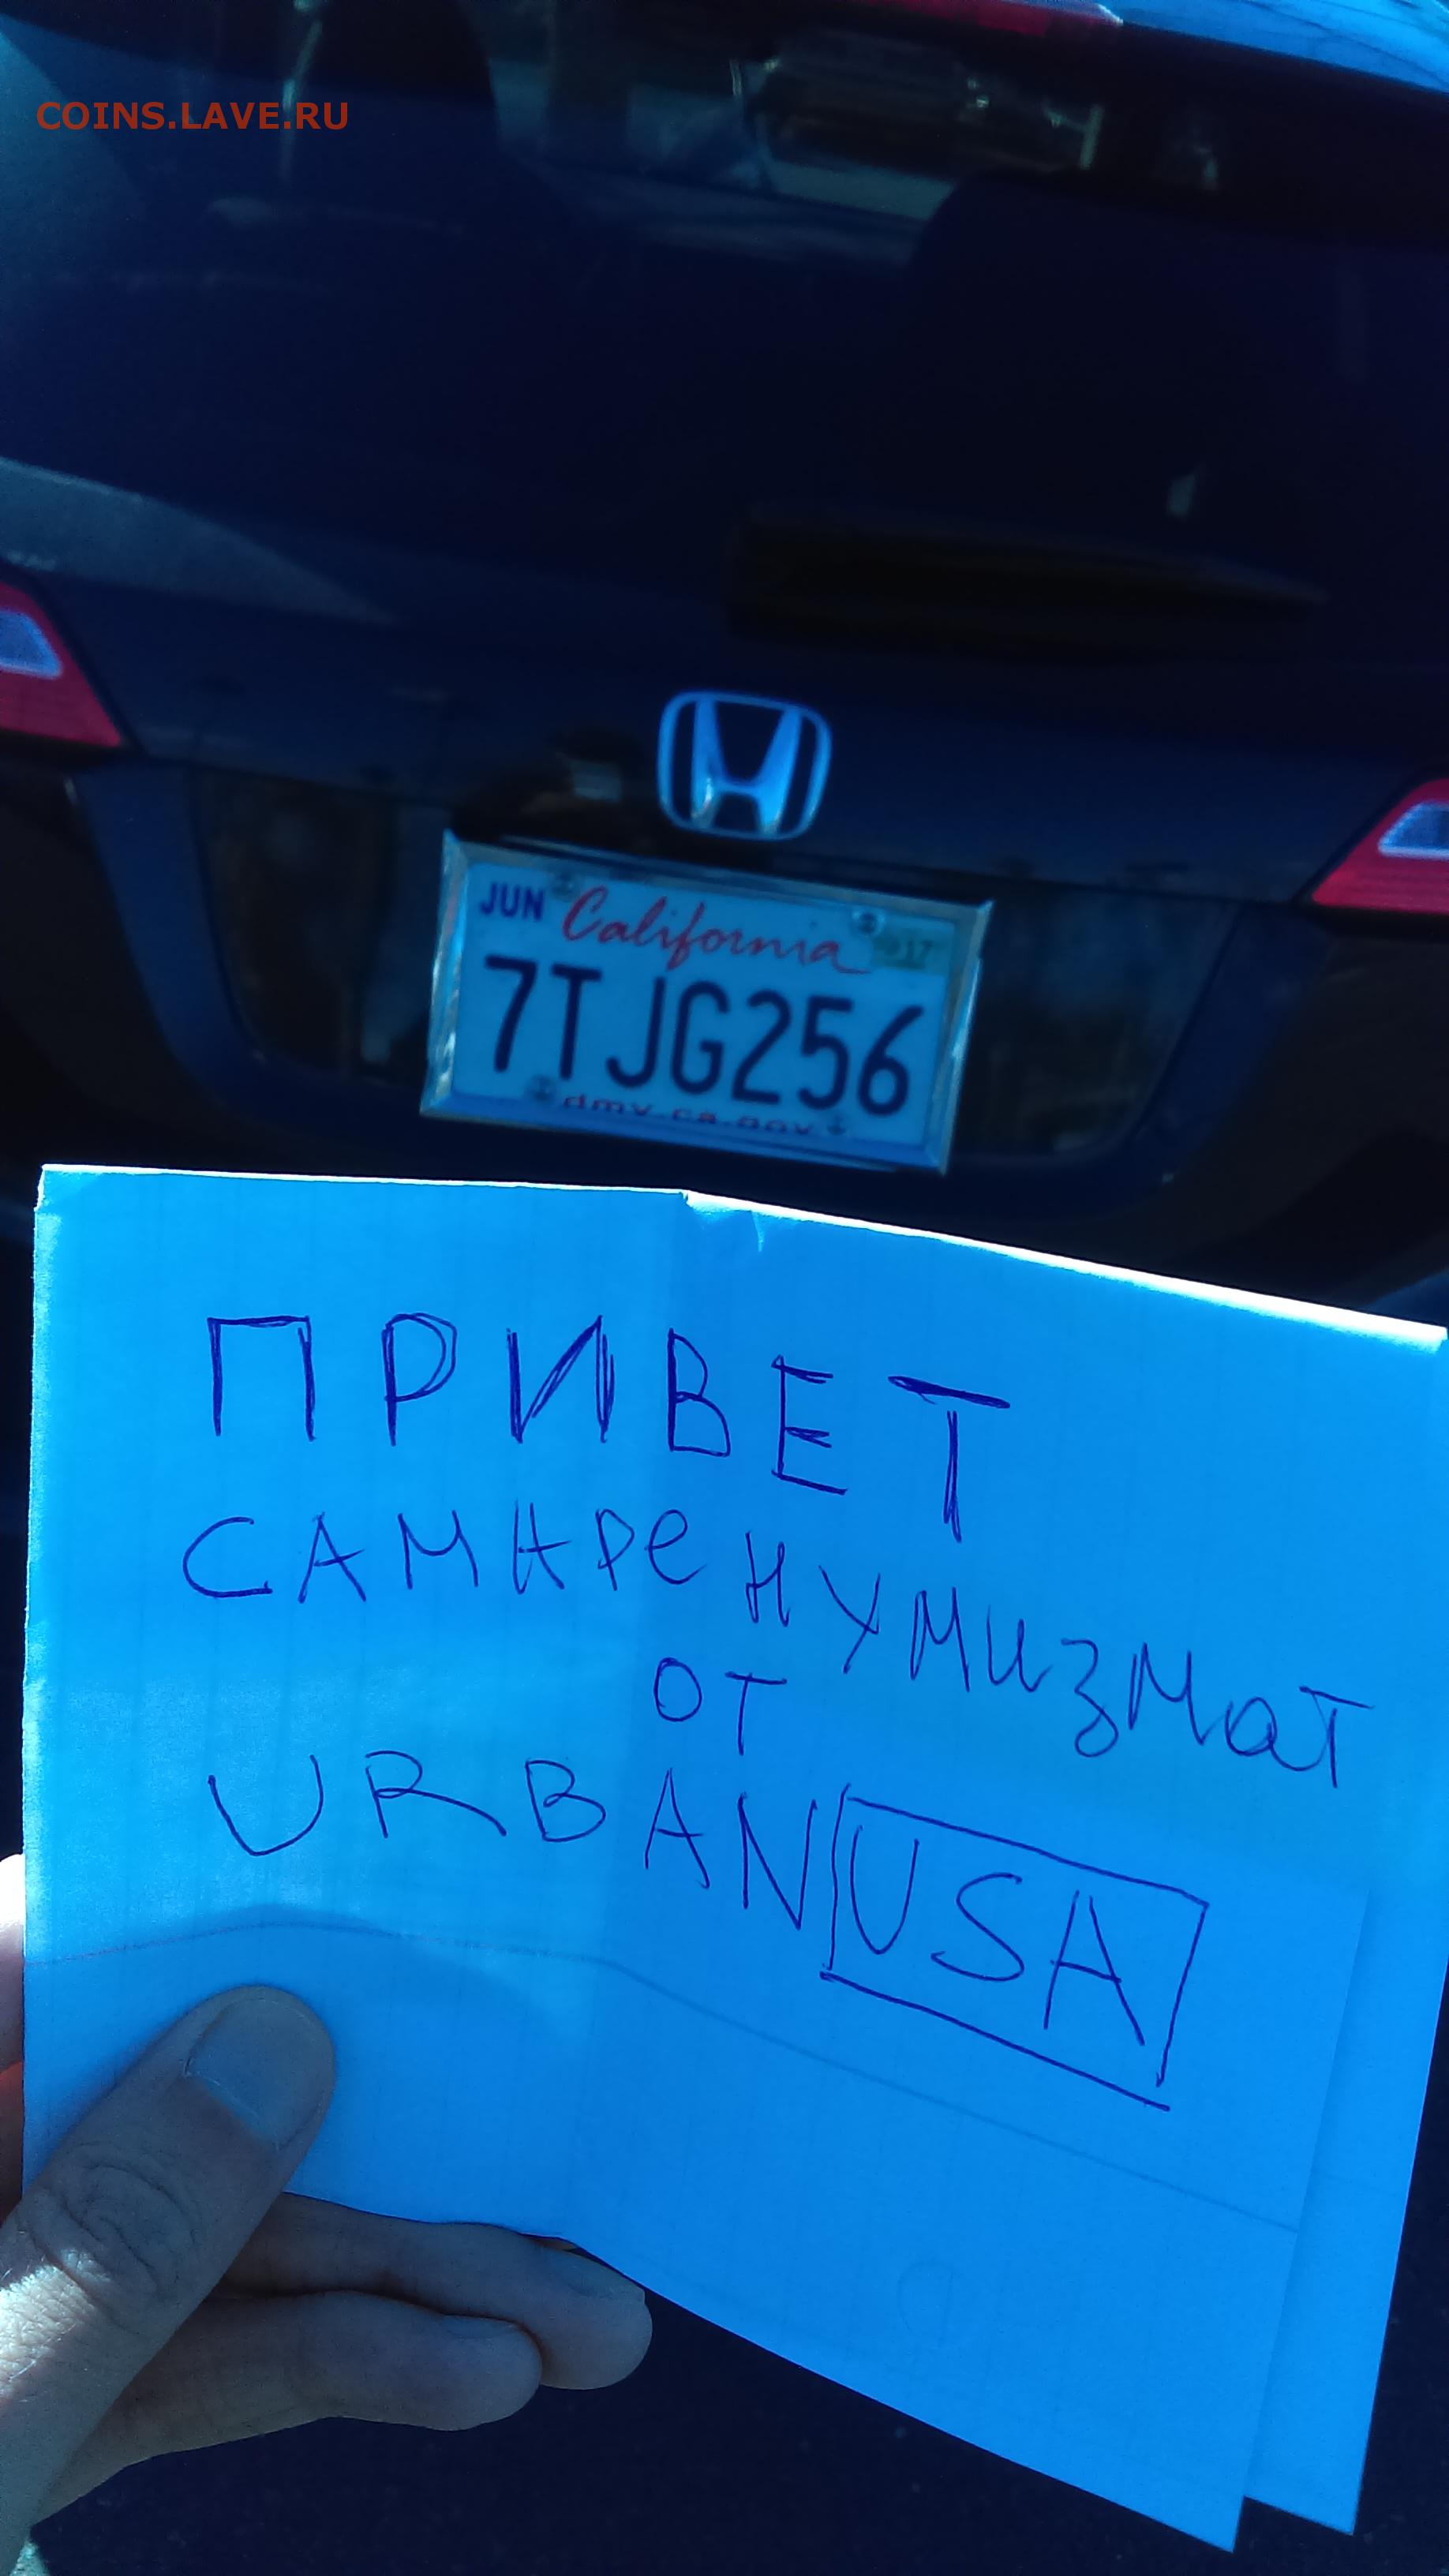 COINS.LAVE.RU
JUN California 17
7TJG256
dmv.ca.gov
ПРИВЕТ
САМАРе НУМИЗМаТ
ОТ
URBAN USA